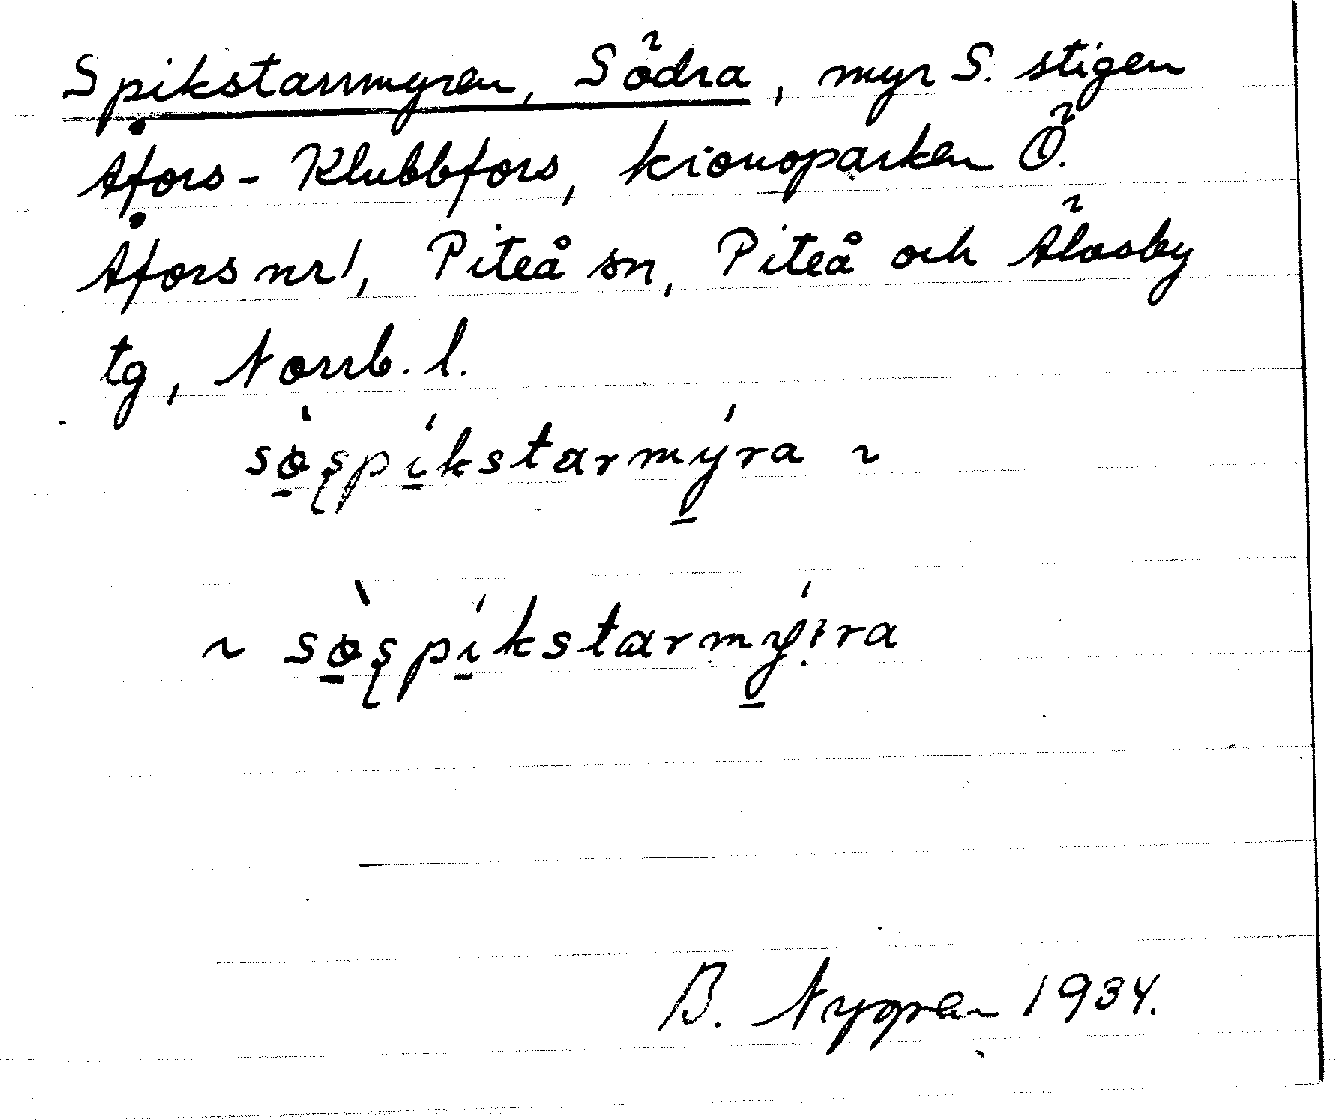 Spikstarrmyren, Södra, myr S. stigen
Åfors - Klubbfors, kronoparken Ö.
Åfors nr 1, Piteå sn, Piteå och Älvsby
tg, Norrb. l.
sø̀ʂpíkstarmýra ~
~ sø̀ʂpíkstarmý:ra
B. Nygren 1934.